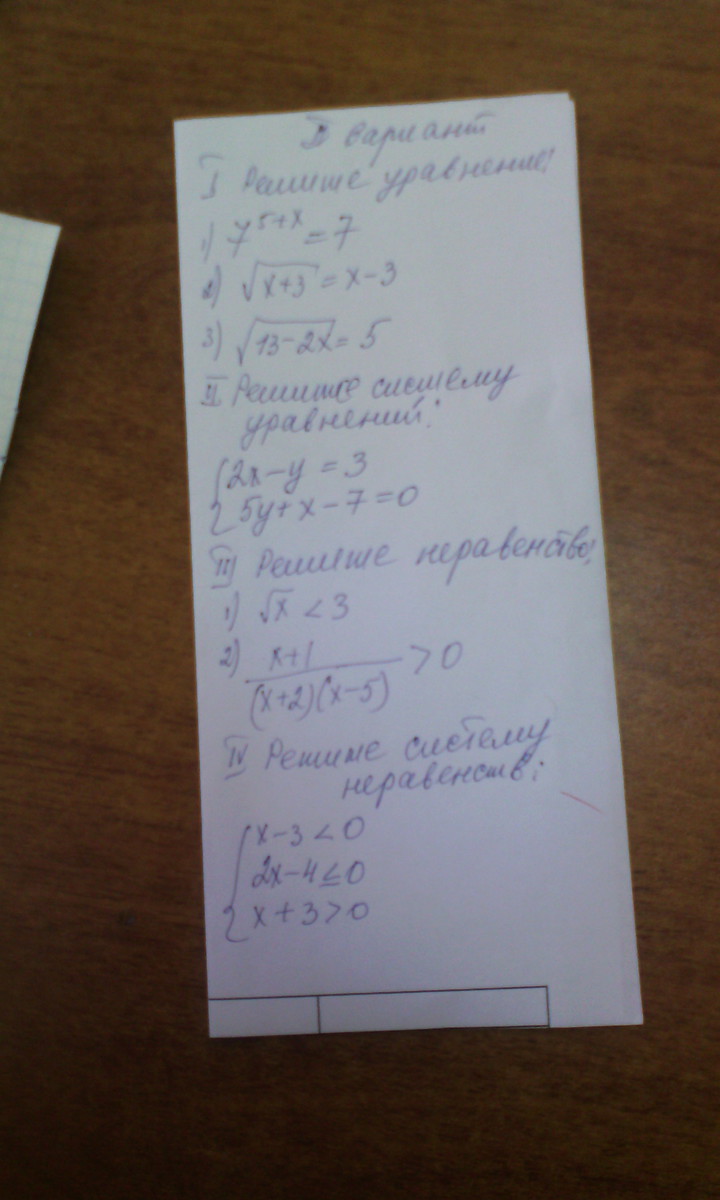 II вариант
I Решите уравнение:
1) 7^{5+x} = 7
2) √(x+3) = x-3
3) √(13-2x) = 5
II Решите систему
уравнений:
{2x-y = 3
5y+x-7=0
III Решите неравенство:
1) √x < 3
2) (x+1)/((x+2)(x-5)) > 0
IV Решите систему
неравенств:
{x-3<0
2x-4≤0
x+3>0